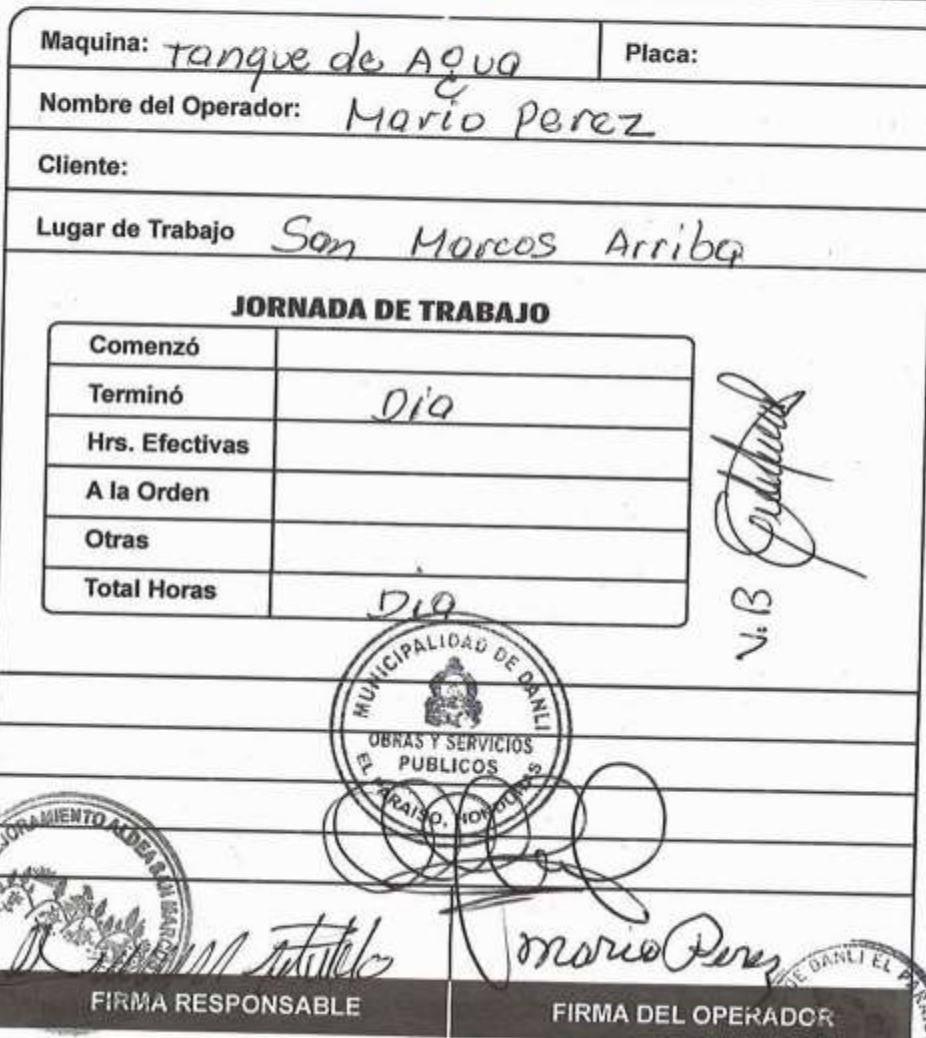 Maquina: Tanque de Agua Placa:
Nombre del Operador: Mario Perez
Cliente:
Lugar de Trabajo San Marcos Arriba
JORNADA DE TRABAJO
Comenzó
Terminó Dia
Hrs. Efectivas
A la Orden
Otras
Total Horas Dia
V.B
MUNICIPALIDAD DE DANLI
OBRAS Y SERVICIOS
PUBLICOS
EL PARAISO, HONDURAS
ALDEA SAN MARCOS
Mario Perez
DE DANLI EL
FIRMA RESPONSABLE FIRMA DEL OPERADOR